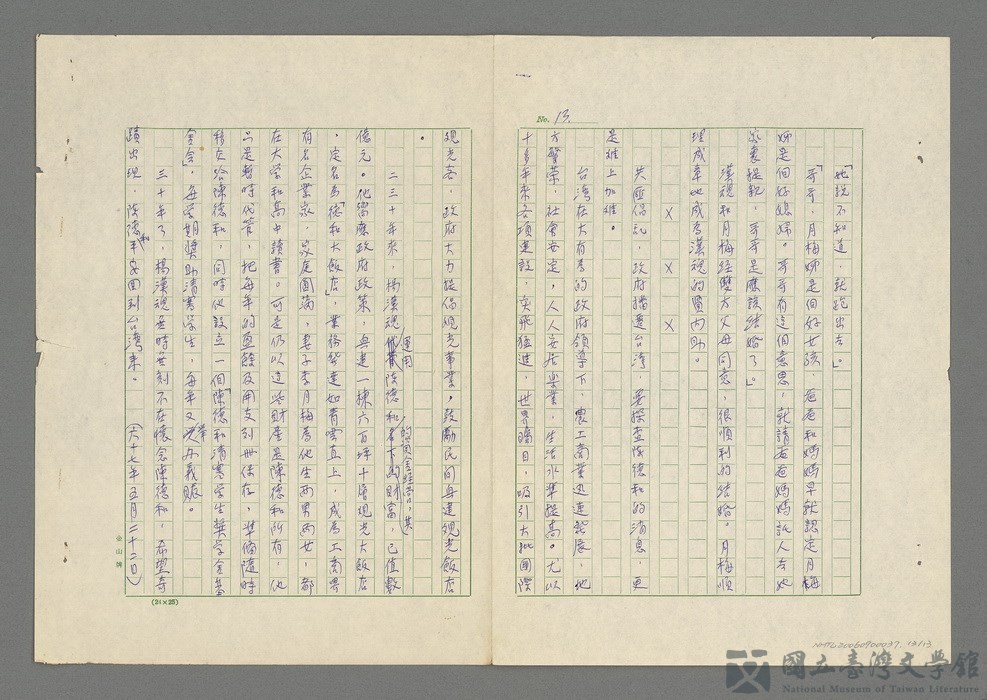 No. 13.
「她說不知道，就跑出去。」
「哥哥，月梅姊是個好女孩，爸爸和媽媽早就認定月梅
姊是個好媳婦。哥哥有這個意思，就請爸爸媽媽託人去她
家裏提親，哥哥是應該結婚了」。
漢魂和月梅經雙方父母同意，很順利的結婚。月梅順
理成章地成為漢魂的賢內助。
X X X
共匪倡亂，政府播遷台灣，要探查陳德和的消息，更
是難上加難。
台灣在大有為的政府領導下，農工商業迅速發展，地
方繁榮，社會安定，人人安居樂業，生活水準提高。尤以
十多年來各項建設，突飛猛進，世界矚目，吸引大批國際
觀光客，政府大力提倡觀光事業，鼓勵民間興建觀光飯店
。
二三十年來，楊漢魂運用陳德和名下的資金經營，其財富，已值數
億元。他響應政府政策，興建一棟六百坪十層觀光大飯店
，定名為「德和大飯店」，業務發達如青雲直上，成為工商界
有名企業家，家庭圓滿，妻子李月梅為他生兩男兩女，都
在大學和高中讀書。可是仍以這些財產是陳德和所有，他
只是暫時代管，把每年的盈餘及開支列冊保存，準備隨時
移交給陳德和，同時他設立一個「陳德和清寒學生獎學金基
金會」，每學期獎助清寒學生，每年又舉辦義賑。
三十年了，楊漢魂無時無刻不在懷念陳德和，希望奇
蹟出現，陳德和平安回到台灣來。 （六十七年五月二十二日）
金山牌
(24×25)
NMTL20060900037. 13/13
國立臺灣文學館
National Museum of Taiwan Literature